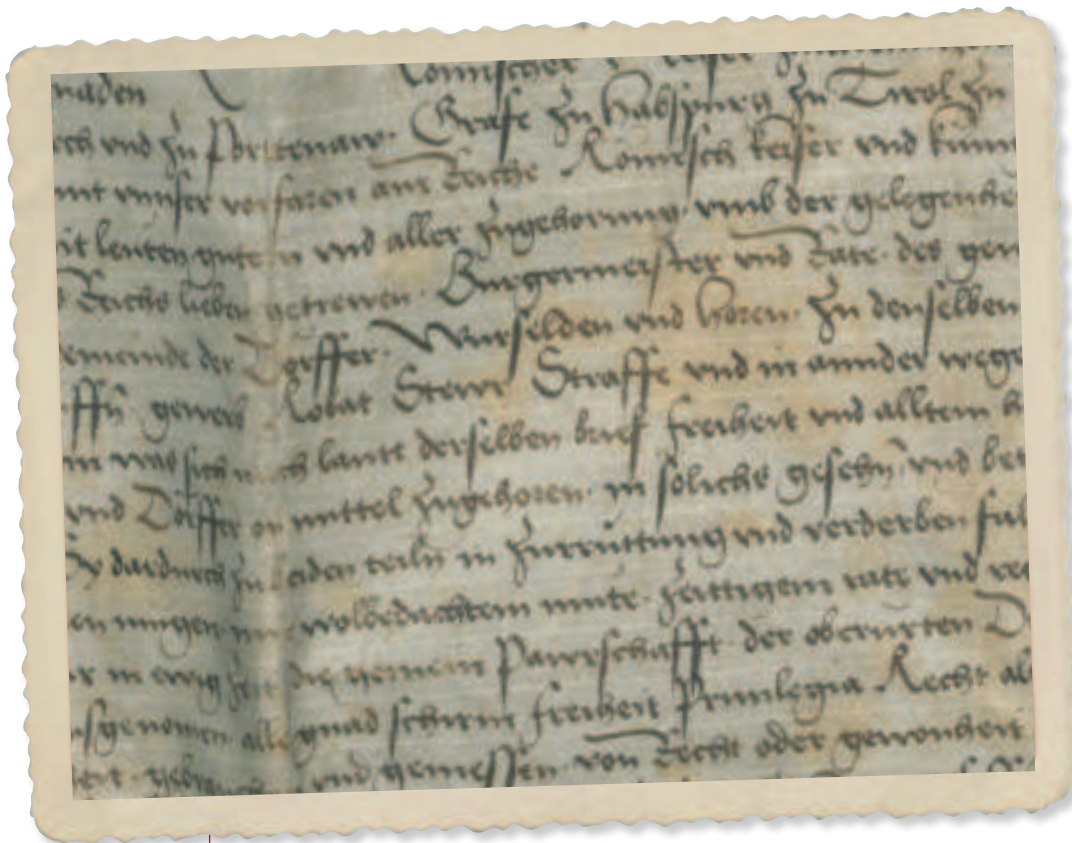 naden Romischer
rch vnd zu Portenaw. Grafe zu Habspurg zu Tirol zu
vnnser vorfaren am Reiche Romisch keiser vnd kunn
it leuten gutern vnd aller zugehorung vmb der gelegenhe
Reichs lieben getrewen. Burgermeister vnd Rate des gen
emeinde der Dorffer. Wurselden vnd Horen. Zu denselben
gewerb Robat Stewr Straffe vnd in annder wege
was sich lautt derselben brief freiheit vnd alltem h
vnd Dorffer on mittel zugehoren. in solichs gesehn vnd bet
dardurch zu beiden teiln in zurruttung vnd verderben fal
wolbedachtem mute. zeittigem rate vnd re
r in ewig zeit die gemein Pawrschafft der oberurten D
sgenomen alle gnad schirm freiheit Priuilegia Recht al
vnd geniessen von Recht oder gewonheit